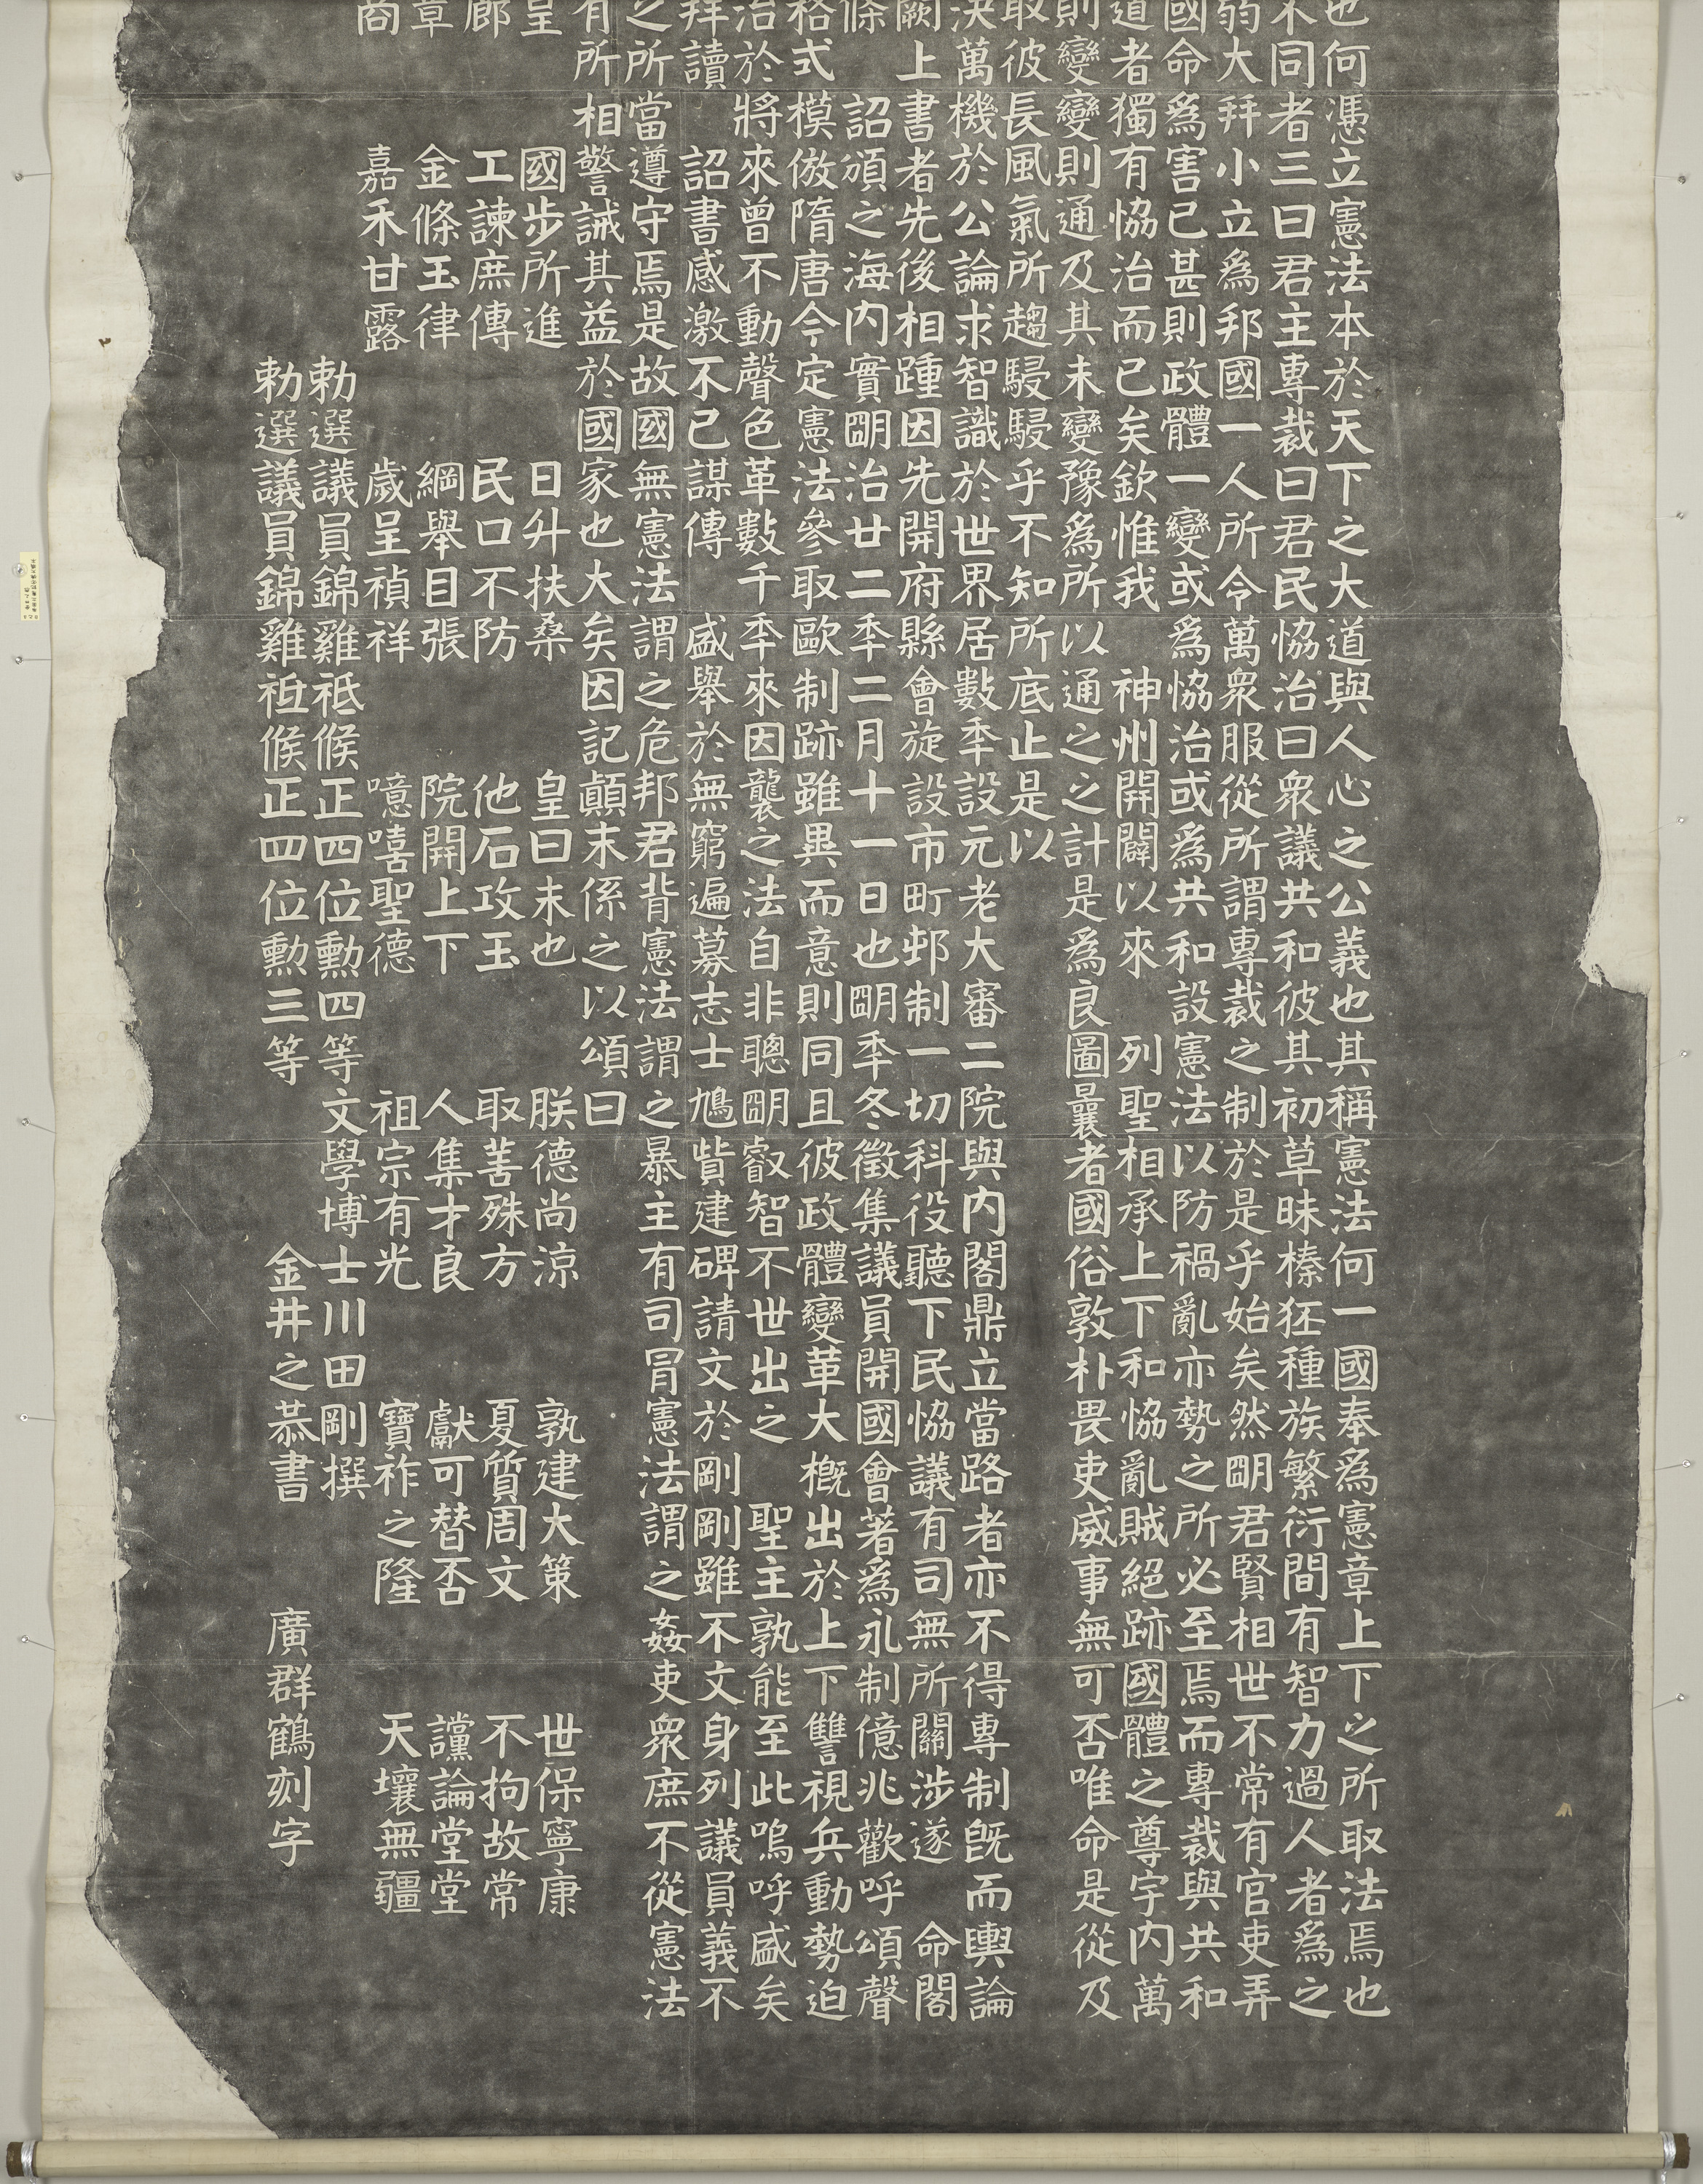 也何憑立憲法本於天下之大道與人心之公義也其稱憲法何一國奉爲憲章上下之所取法焉也
不同者三曰君主專裁曰君民恊治曰衆議共和彼其初草昧榛狉種族繁衍間有智力過人者爲之
弱大幷小立爲邦國一人所令萬衆服從所謂專裁之制於是乎始矣然明君賢相世不常有官吏弄
國命爲害已甚則政體一變或爲恊治或爲共和設憲法以防禍亂亦勢之所必至焉而專裁與共和
道者獨有恊治而已矣欽惟我 神州開闢以來 列聖相承上下和恊亂賊絕跡國體之尊宇内萬
則變變則通及其未變豫爲所以通之之計是爲良圖曩者國俗敦朴畏吏威事無可否唯命是從及
取彼長風氣所趨駸駸乎不知所底止是以
決萬機於公論求智識於世界居數秊設元老大審二院與内閣鼎立當路者亦不得專制旣而輿論
闕上書者先後相踵因先開府縣會旋設市町邨制一切科役聽下民恊議有司無所關涉遂 命閣
條 詔頒之海内實明治廿二秊二月十一日也明秊冬徵集議員開國會著爲永制億兆歡呼頌聲
格式模倣隋唐今定憲法參取歐制跡雖異而意則同且彼政體變革大槪出於上下讐視兵動勢迫
治於將來曾不動聲色革數千秊來因襲之法自非聰明叡智不世出之 聖主孰能至此嗚呼盛矣
拜讀 詔書感激不已謀傳 盛舉於無窮遍募志士鳩貲建碑請文於剛剛雖不文身列議員義不
之所當遵守焉是故國無憲法謂之危邦君背憲法謂之暴主有司冐憲法謂之姦吏衆庶不從憲法
有所相警誡其益於國家也大矣因記顚末係之以頌曰
呈 國步所進 日升扶桑 皇曰末也 朕德尚涼 孰建大策 世保寧康
郎 工諫庶傳 民口不防 他石攻玉 取善殊方 夏質周文 不拘故常
章 金條玉律 綱舉目張 院開上下 人集才良 獻可替否 讜論堂堂
商 嘉禾甘露 歲呈禎祥 噫嘻聖德 祖宗有光 寶祚之隆 天壤無疆
勅選議員錦雞祗候正四位勲四等文學博士川田剛撰
勅選議員錦雞祗候正四位勲三等 金井之恭書 廣群鶴刻字